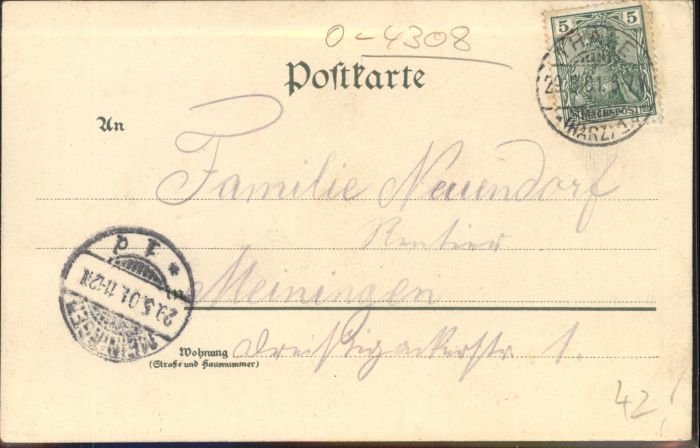 0-4308
5 5
REICHSPOST
THALE
(HARZ)
Postkarte
An
Familie Neuendorf
Rentier
in Meiningen
Wohnung
(Straße und Hausnummer)
Dreißigackerstr. 1.
MEININGEN
29.5.01.11-12N.
* 1 d
42